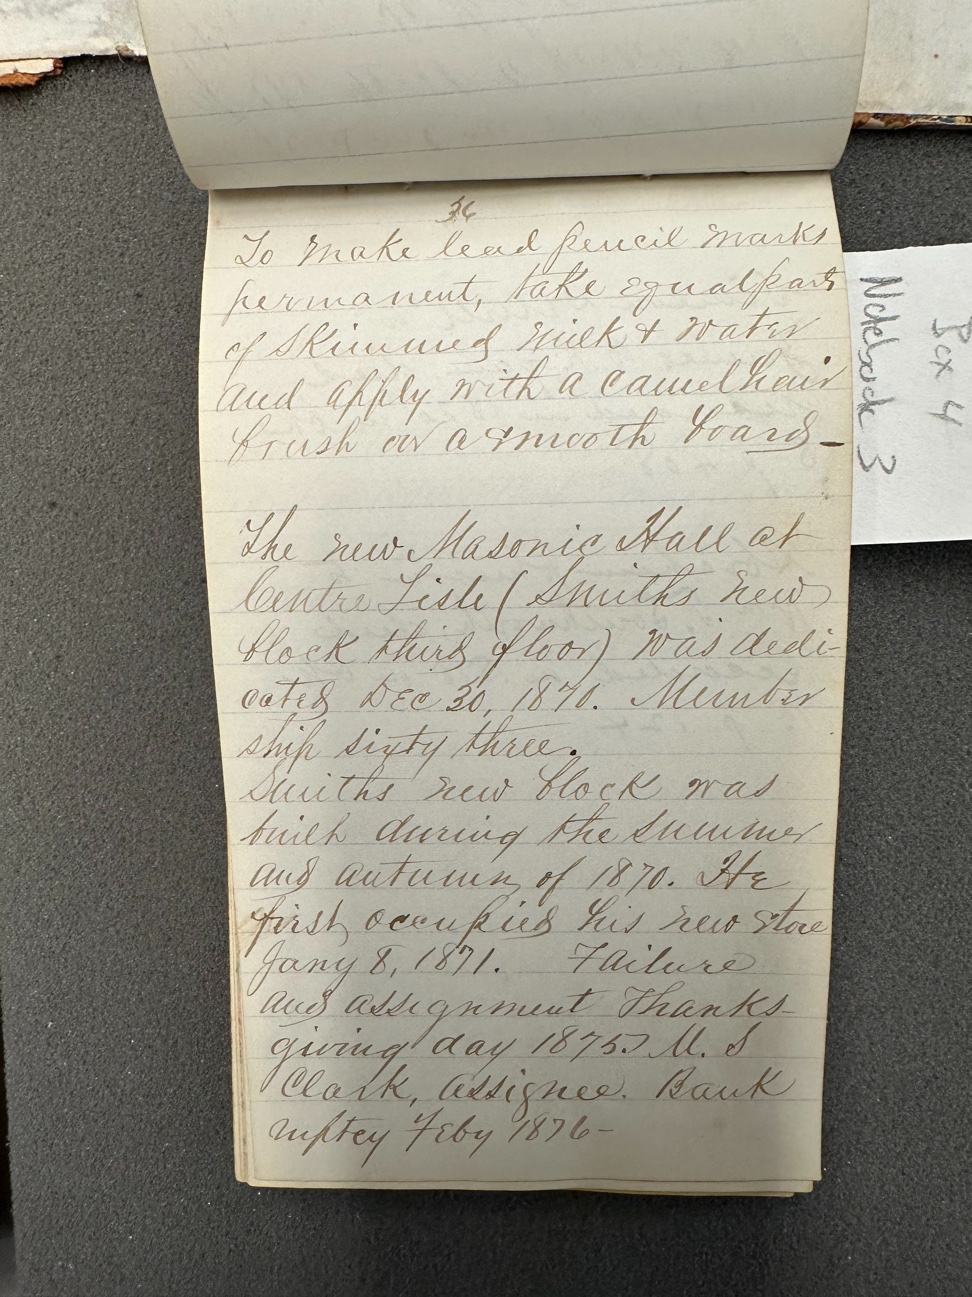 36
To make lead pencil marks
permanent, take equal parts
of skimmed milk & water
and apply with a camel hair
brush or a smooth board -
The new Masonic Hall at
Centre Lisle (Smiths new
block third floor) was dedi-
cated Dec 30, 1870. Member
ship sixty three.
Smiths new block was
built during the summer
and autumn of 1870. He
first occupied his new store
Jany 8, 1871. Failure
and assignment Thanks-
giving day 1875. M. S
Clark, assignee. Bank
ruptcy Feby 1876-
Box 4
Notebook 3